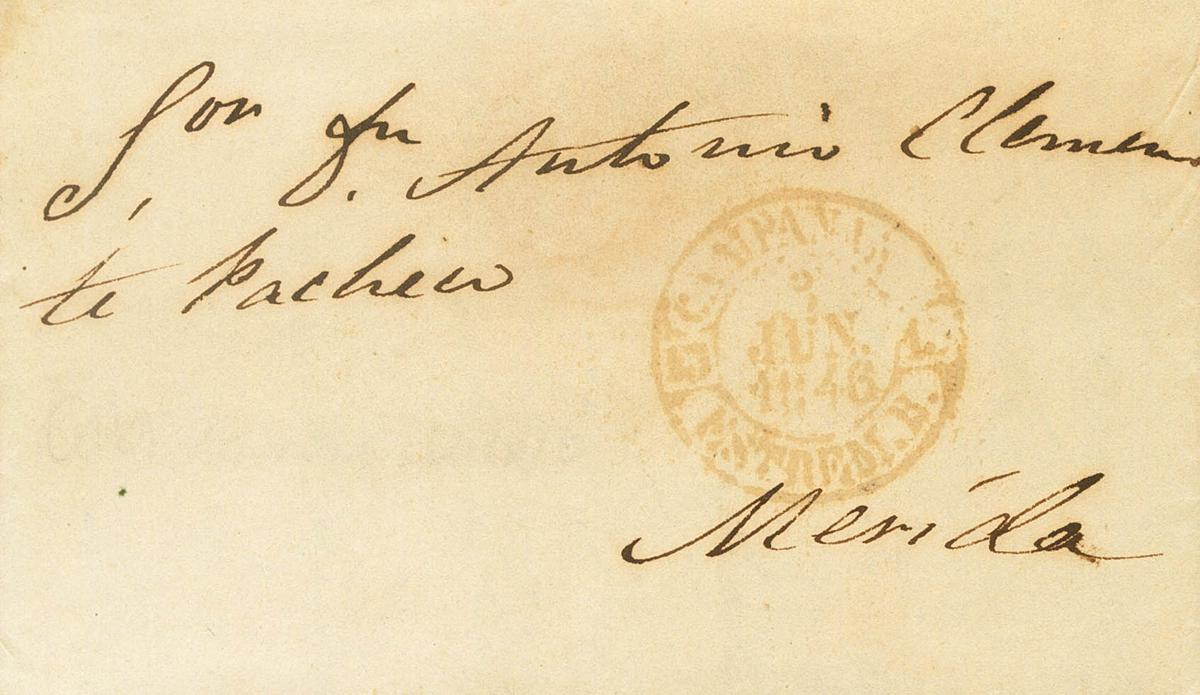 Sor Dn. Antonio Clemen
te Pacheco
CAMPANA
JUN.
1846
ESTREM. B.
Merida